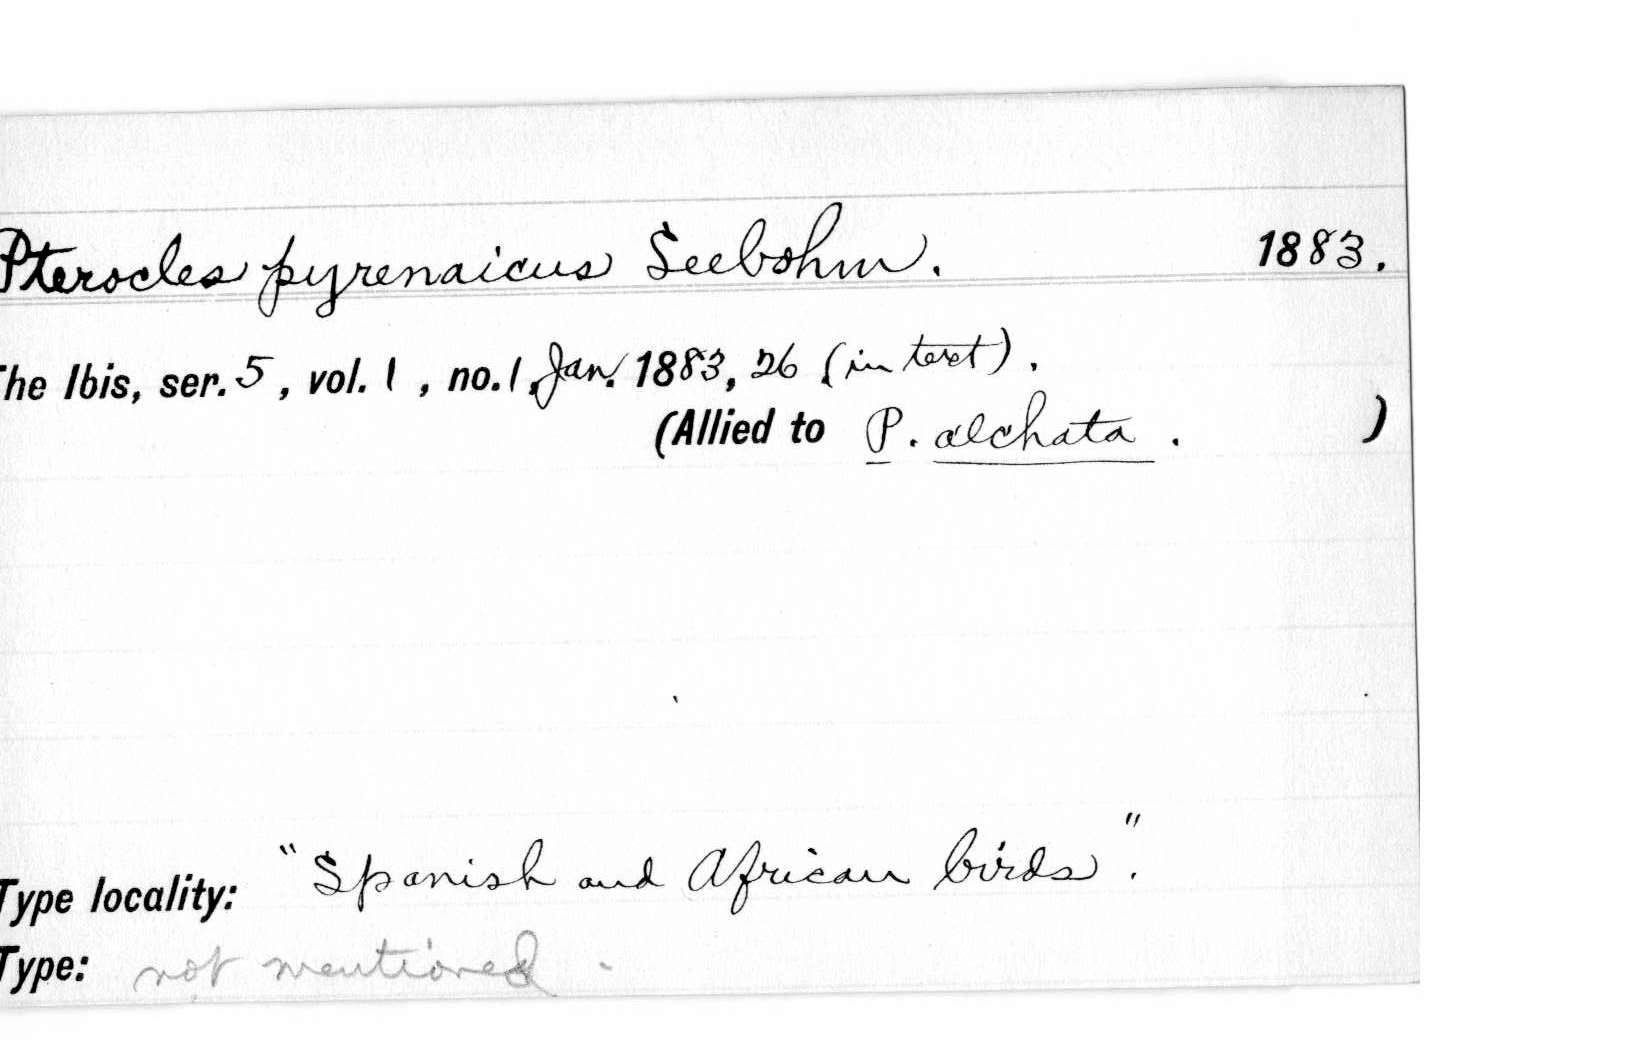 Pterocles pyrenaicus Seebohm. 1883.
The Ibis, ser. 5, vol. 1, no. 1, Jan. 1883, 26 (in text).
(Allied to P. alchata. )
Type locality: "Spanish and African birds".
Type: not mentioned.